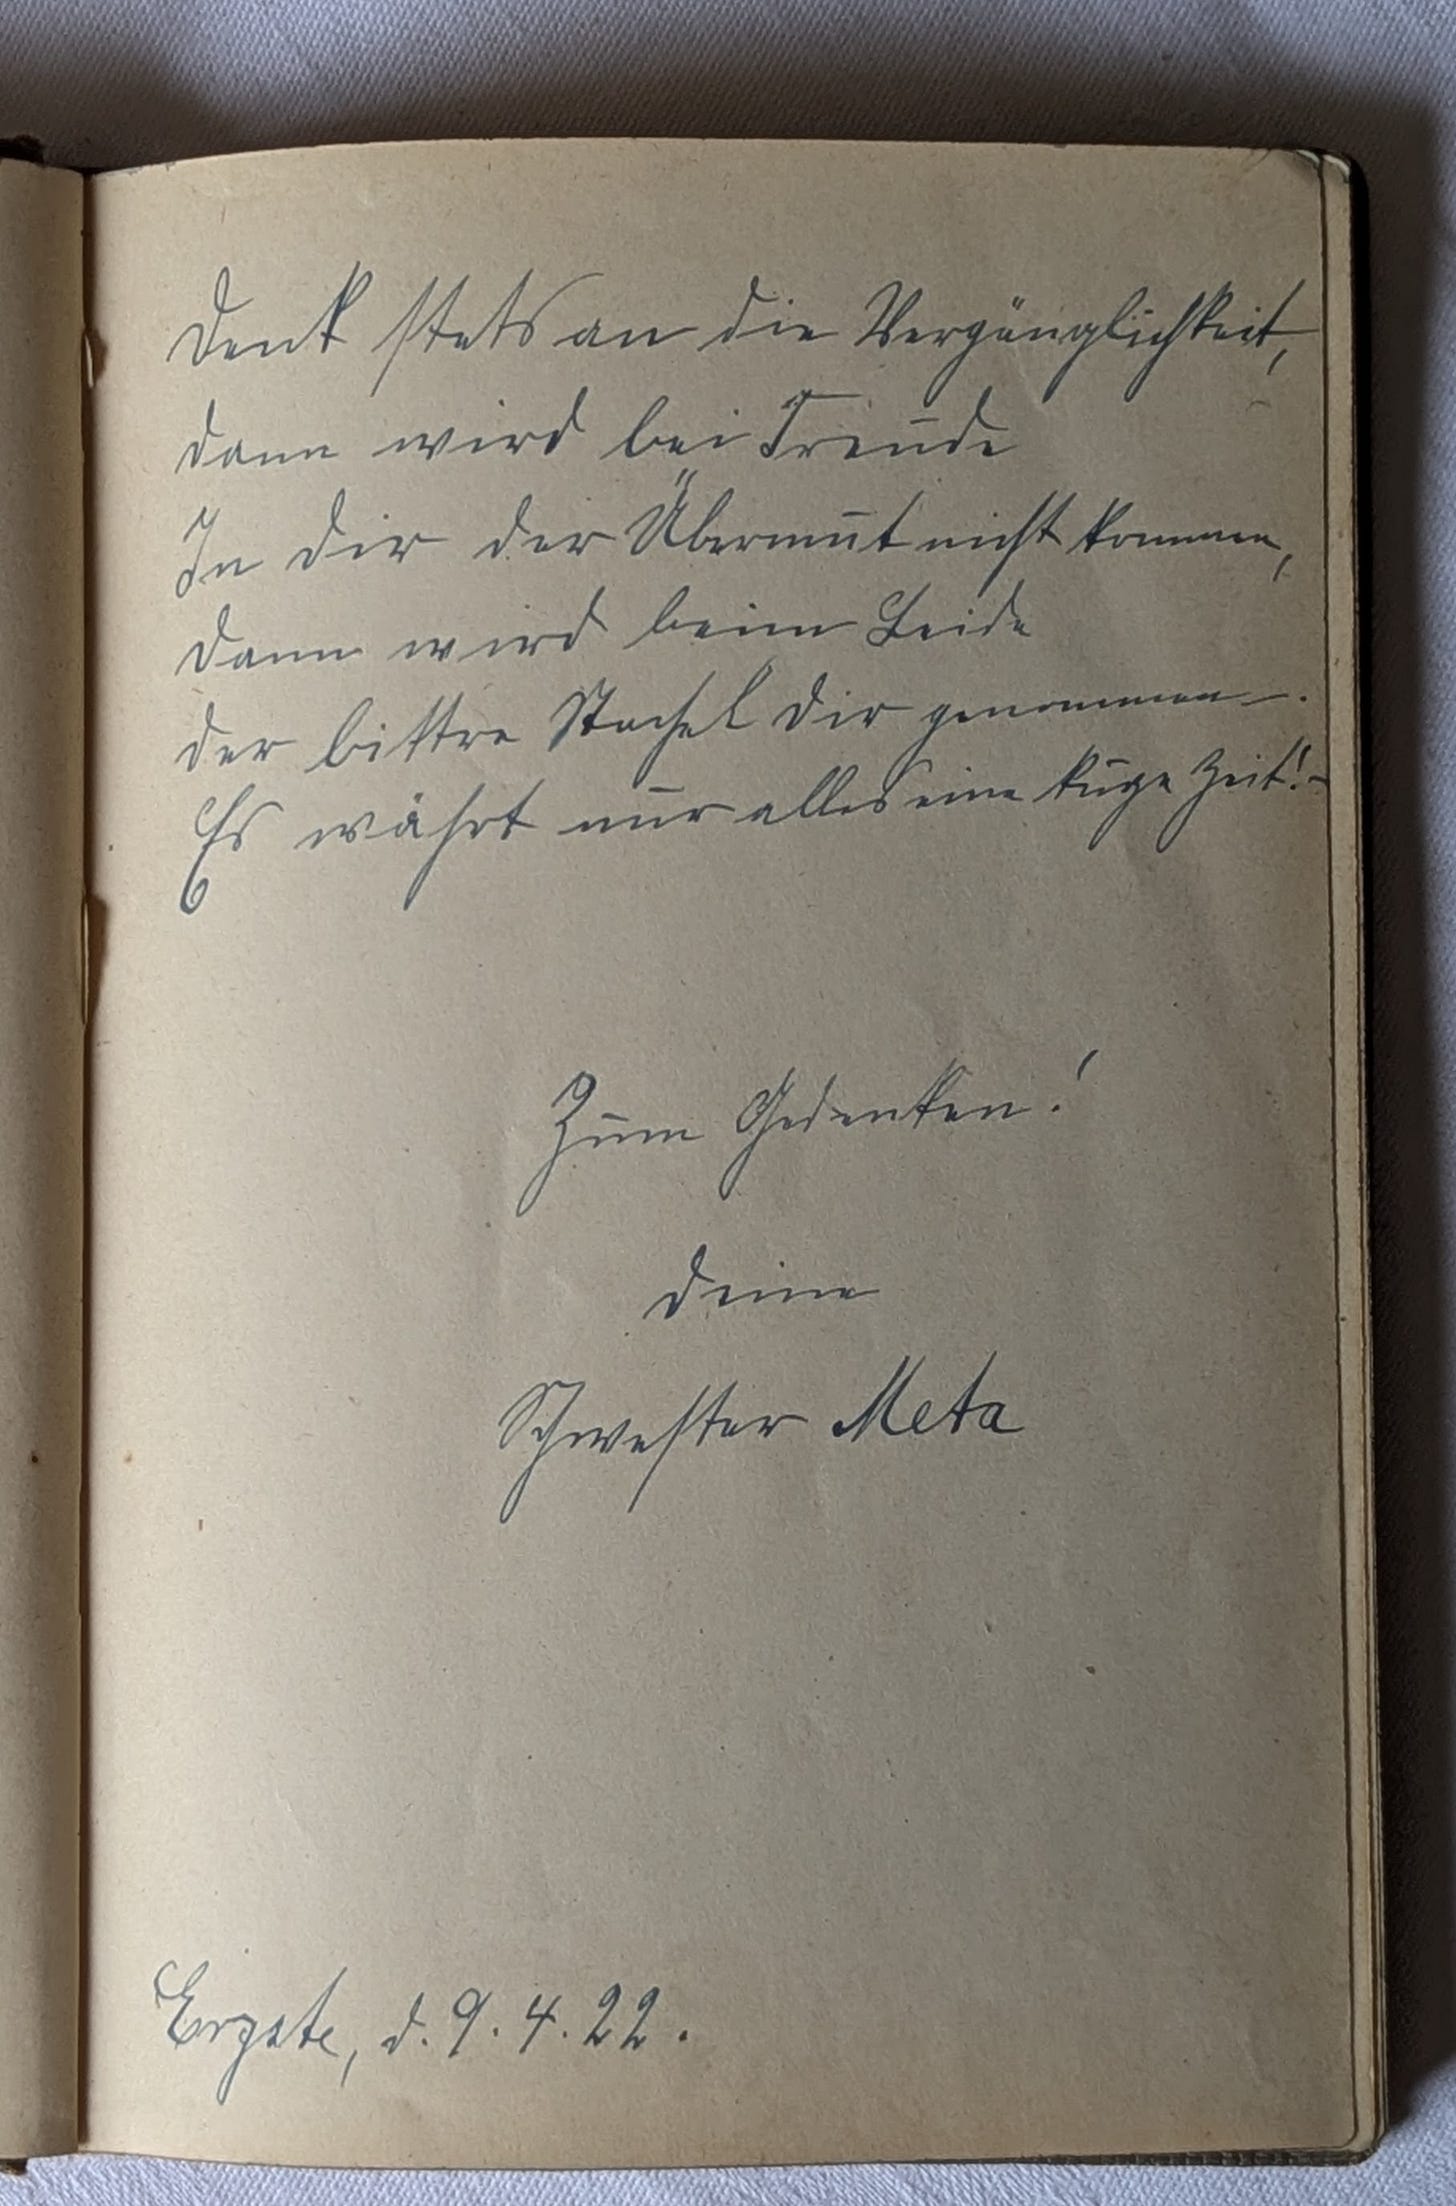 Denk stets an die Vergänglichkeit,
dann wird bei Freude
In dir der Übermut nicht kommen,
Dann wird beim Leide
der bittre Stachel dir genommen.
Es währt nur alles eine kurze Zeit! -
Zum Gedenken!
deine
Schwester Meta
Ergste, d. 9. 4. 22.